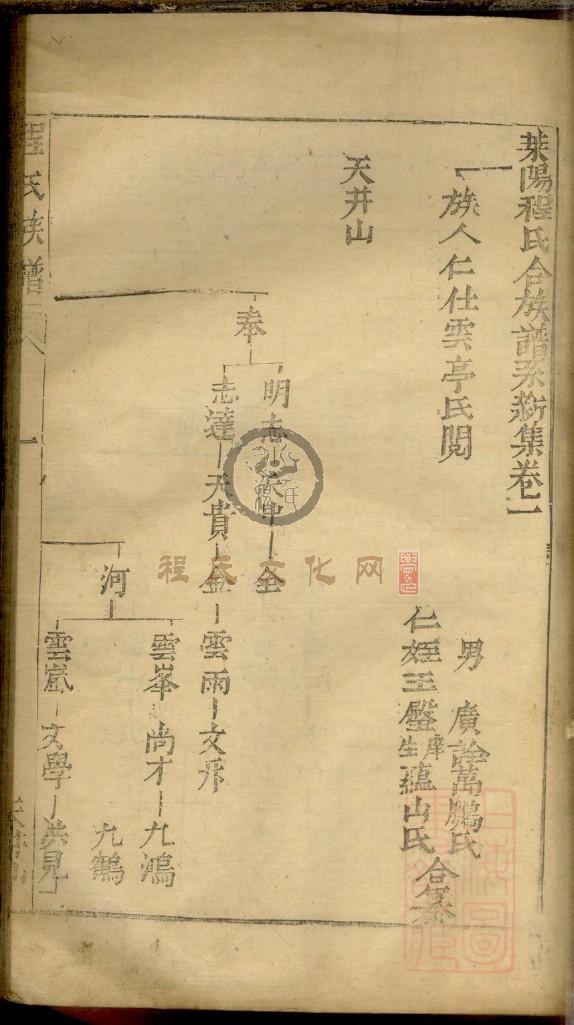 萊陽程氏合族譜系新集卷二
族人仁仕雲亭氏閱
男 廣詥萬鵬氏
仁姪王鑑庠生蘊山氏 合纂
天井山
奉
明志
全
志達 天貴 金 雲雨 文升
河
雲峯 尚才 九鴻
九鶴
雲嵐 文學 洪見
程氏族譜
程氏文化网